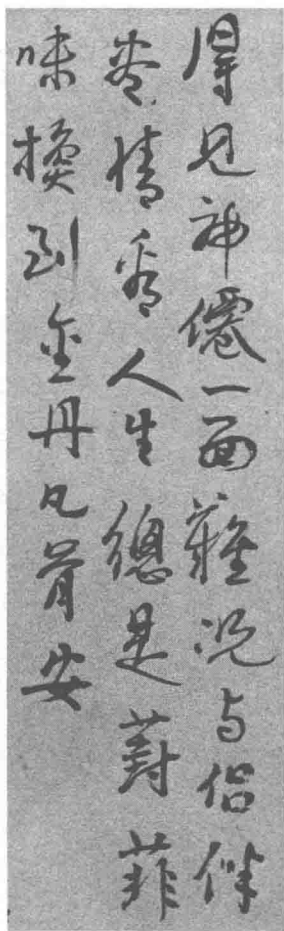 得見神僊一面難况与侣伴
盡情看人生總是葑菲
味換到金丹凡骨安